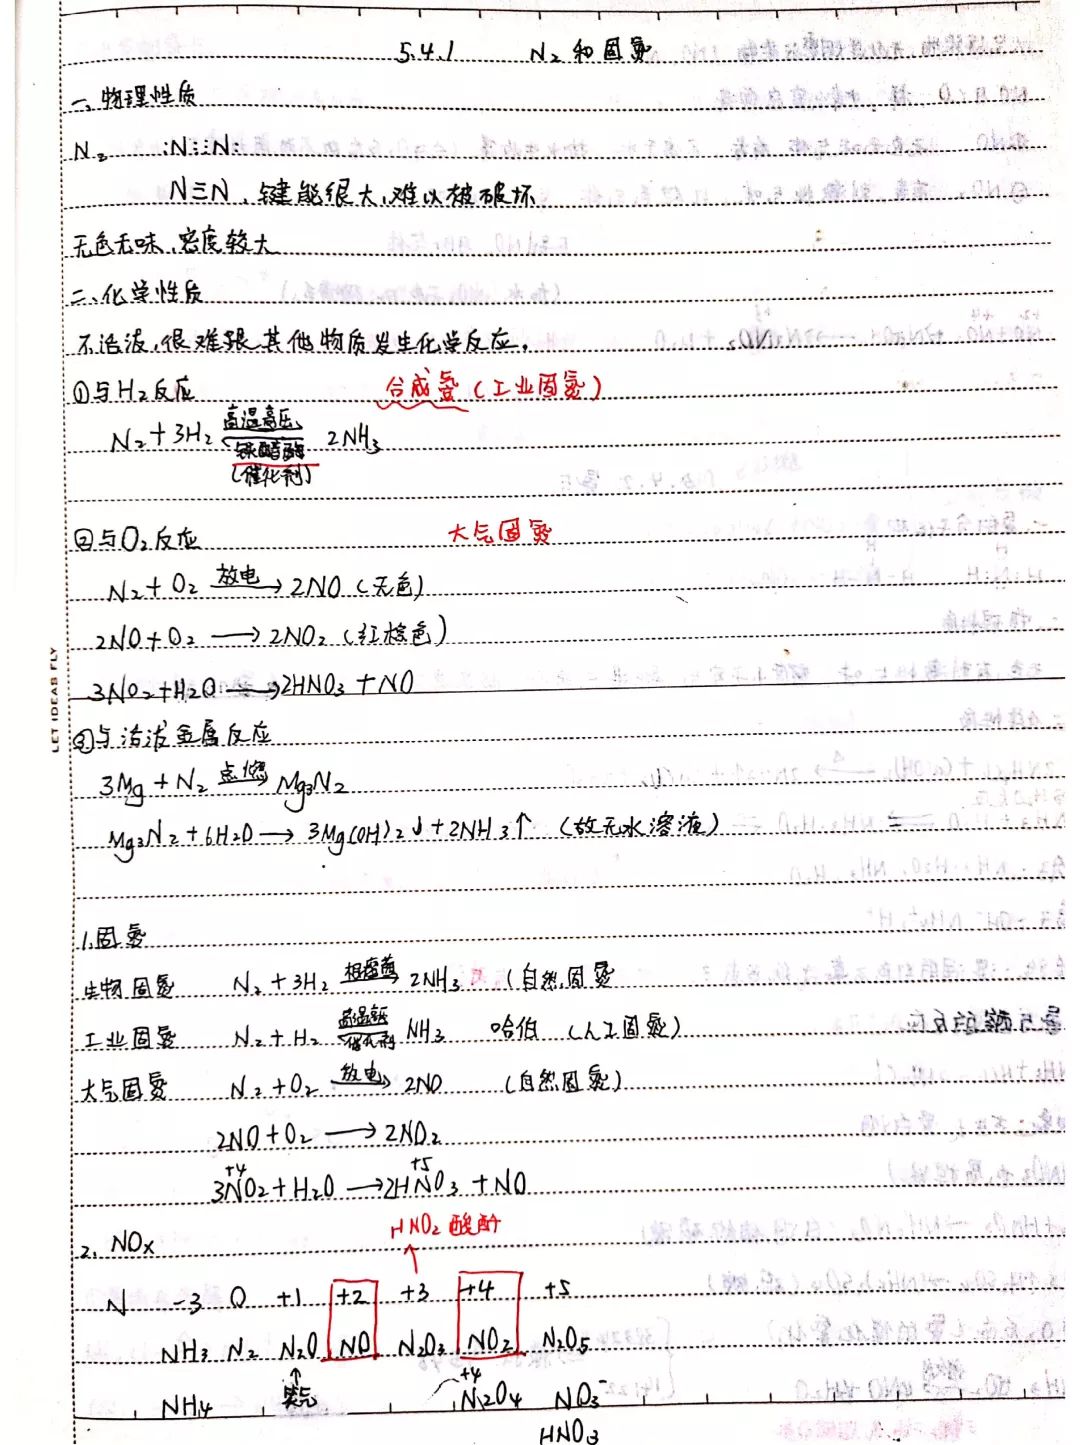 5.4.1 N₂和固氮
一、物理性质
N₂ :N⋮⋮N:
N≡N,键能很大,难以被破坏
无色无味,密度较大
二、化学性质
不活泼,很难跟其他物质发生化学反应.
①与H₂反应 合成氨(工业固氮)
N₂+3H₂ 高温高压 2NH₃
铁触酶
(催化剂)
②与O₂反应 大气固氮
N₂+O₂ 放电→ 2NO(无色)
2NO+O₂ → 2NO₂(红棕色)
3NO₂+H₂O → 2HNO₃+NO
③与活泼金属反应
3Mg+N₂ 点燃→ Mg₃N₂
Mg₃N₂+6H₂O → 3Mg(OH)₂↓+2NH₃↑ (故无水溶液)
LET IDEAS FLY
1.固氮
生物固氮 N₂+3H₂ 根瘤菌→ 2NH₃ (自然固氮
工业固氮 N₂+H₂ 高温高压 催化剂 NH₃ 哈伯 (人工固氮)
大气固氮 N₂+O₂ 放电→ 2NO (自然固氮)
2NO+O₂ → 2NO₂
+4 +5
3NO₂+H₂O → 2HNO₃+NO
HNO₂酸酐
2、NOx ↑
N -3 0 +1 +2 +3 +4 +5
NH₃ N₂ N₂O NO N₂O₃ NO₂ N₂O₅
↑ +4
NH₄ 笑气 N₂O₄ NO₃⁻
HNO₃